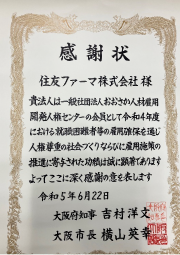 感謝状
住友ファーマ株式会社 様
貴法人は一般社団法人おおさか人材雇用
開発人権センターの会員として令和4年度
における就職困難者等の雇用確保を通じ
人権尊重の社会づくりならびに雇用施策の
推進に寄与された功績は誠に顕著であります
よってここに深く感謝の意を表します
令和5年6月22日
大阪府知事 吉村洋文
大阪市長 横山英幸